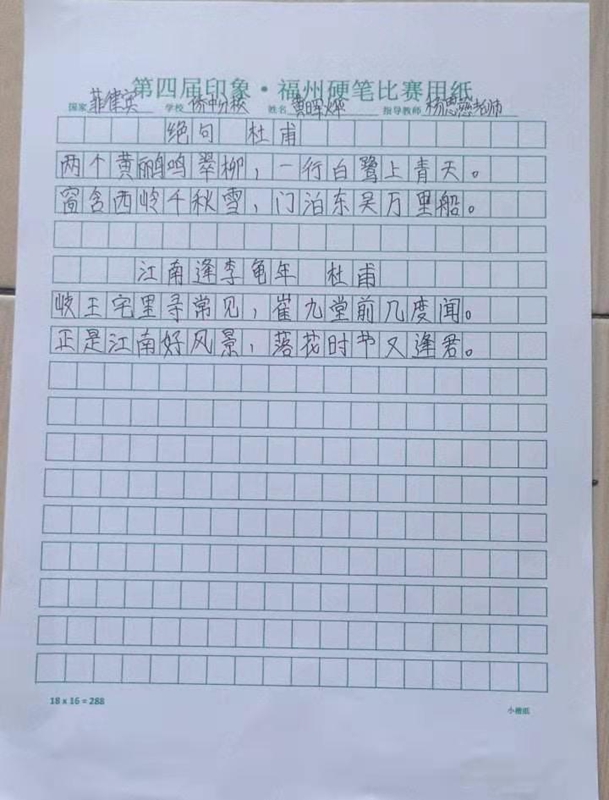 第四届印象·福州硬笔比赛用纸
国家 菲律宾 学校 侨中分校 姓名 黄晖烨 指导教师 杨思慈老师
绝句 杜甫
两个黄鹂鸣翠柳，一行白鹭上青天。
窗含西岭千秋雪，门泊东吴万里船。
江南逢李龟年 杜甫
岐王宅里寻常见，崔九堂前几度闻。
正是江南好风景，落花时节又逢君。
18 x 16 = 288